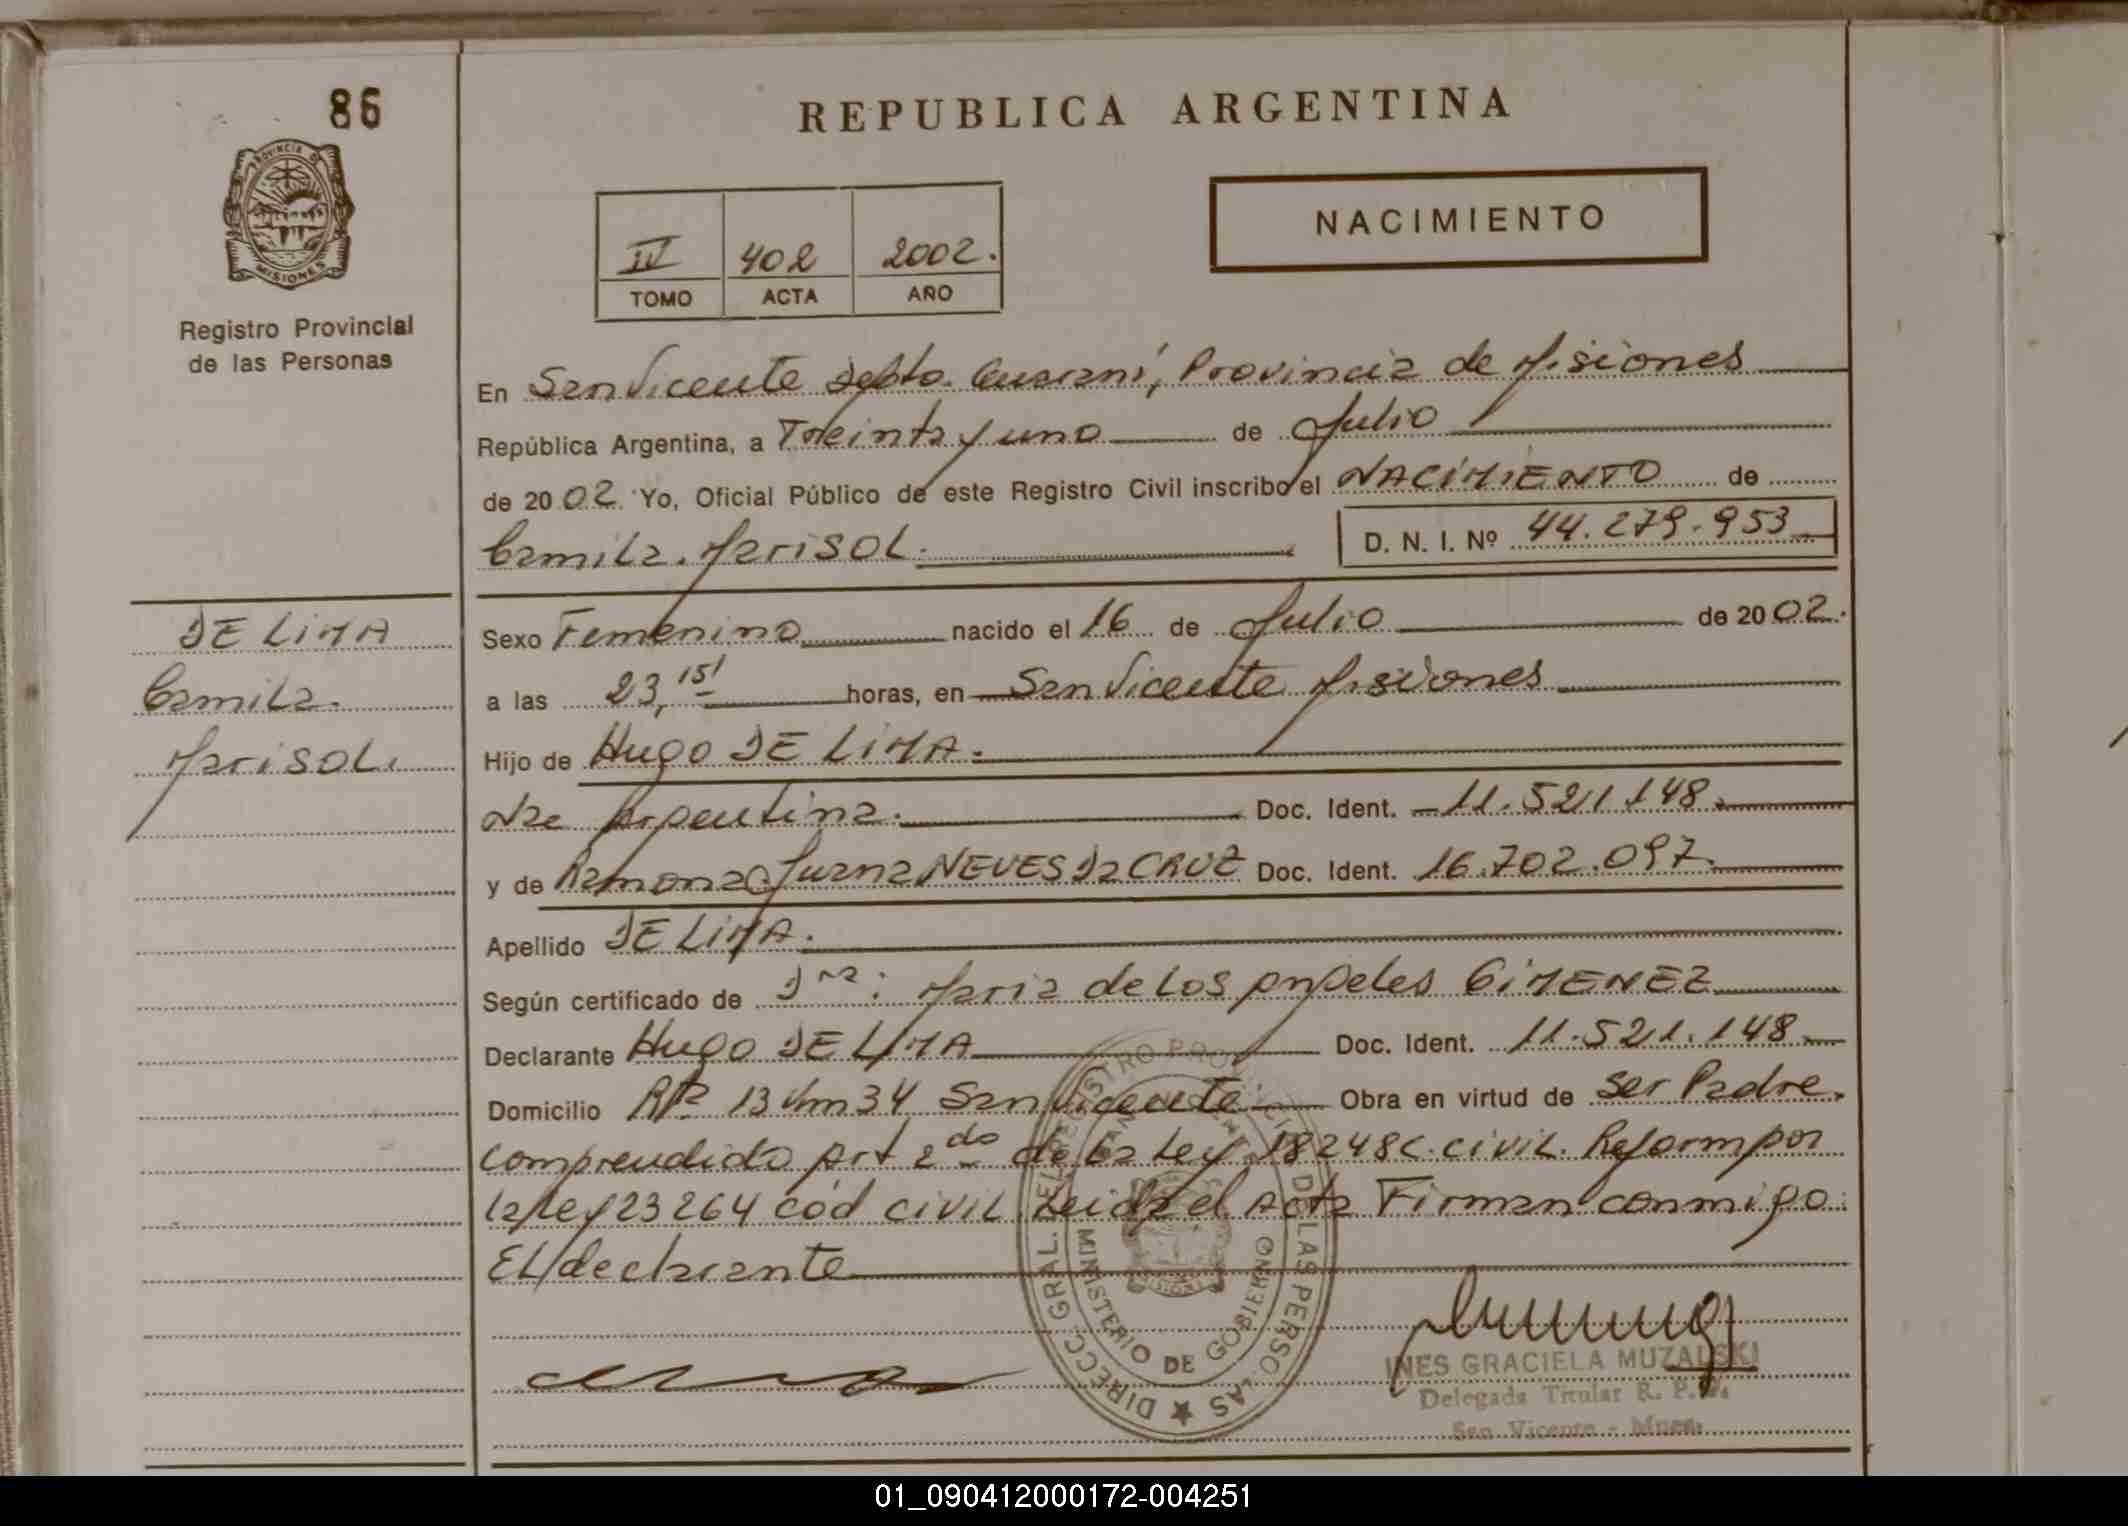 86
PROVINCIA DE
MISIONES
Registro Provincial
de las Personas
REPUBLICA ARGENTINA
IV 402 2002.
TOMO ACTA AÑO
NACIMIENTO
En San Vicente Depto. Guaraní, Provincia de Misiones
República Argentina, a Treinta y uno de Julio
de 2002. Yo, Oficial Público de este Registro Civil inscribo el NACIMIENTO de
Camila. Marisol. D. N. I. Nº 44.279.953
DE LIMA
Camila.
Marisol.
Sexo Femenino nacido el 16 de Julio de 2002.
a las 23,15' horas, en San Vicente Misiones
Hijo de Hugo DE LIMA.
Nac Argentina. Doc. Ident. 11.521.148.
y de Ramona Juana NEVES Da CRUZ Doc. Ident. 16.702.097.
Apellido DE LIMA.
Según certificado de Dra: Maria de Los Angeles GIMENEZ
Declarante Hugo DE LIMA Doc. Ident. 11.521.148.
Domicilio RP 13 Km 34 San Vicente Obra en virtud de Ser Padre.
Comprendido Art 2do de La Ley 18248 C. Civil. Reform por
la Ley 23264 cód civil. Leida el Acta Firman conmigo:
El declarante
DIRECC. GRAL. DEL REGISTRO PROVINCIAL DE LAS PERSONAS
MINISTERIO DE GOBIERNO
INES GRACIELA MUZALSKI
Delegada Titular R. P. P.
San Vicente - Mnes.
01_090412000172-004251